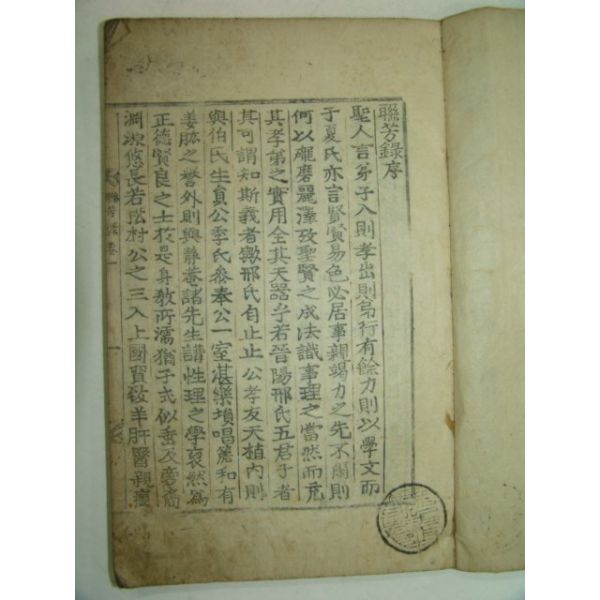 聯芳錄序
聖人言弟子入則孝出則弟行有餘力則以學文而
子夏氏亦言賢賢易色必居事親竭力之先不爾則
何以麗磨麗澤攷聖賢之成法識事理之當然而充
其孝弟之實用全其天器乎若晉陽邢氏五君子者
其可謂知斯義者歟邢氏自止止公孝友天植內則
與伯氏生員公季氏參奉公一室湛樂塤唱箎和有
姜肱之譽外則與靜菴諸先生講性理之學裒然爲
正德賢良之士於是身敎所濡猶子式似垂及旁裔
淵源悠長若松村公之三入上國貿致羊肝醫親